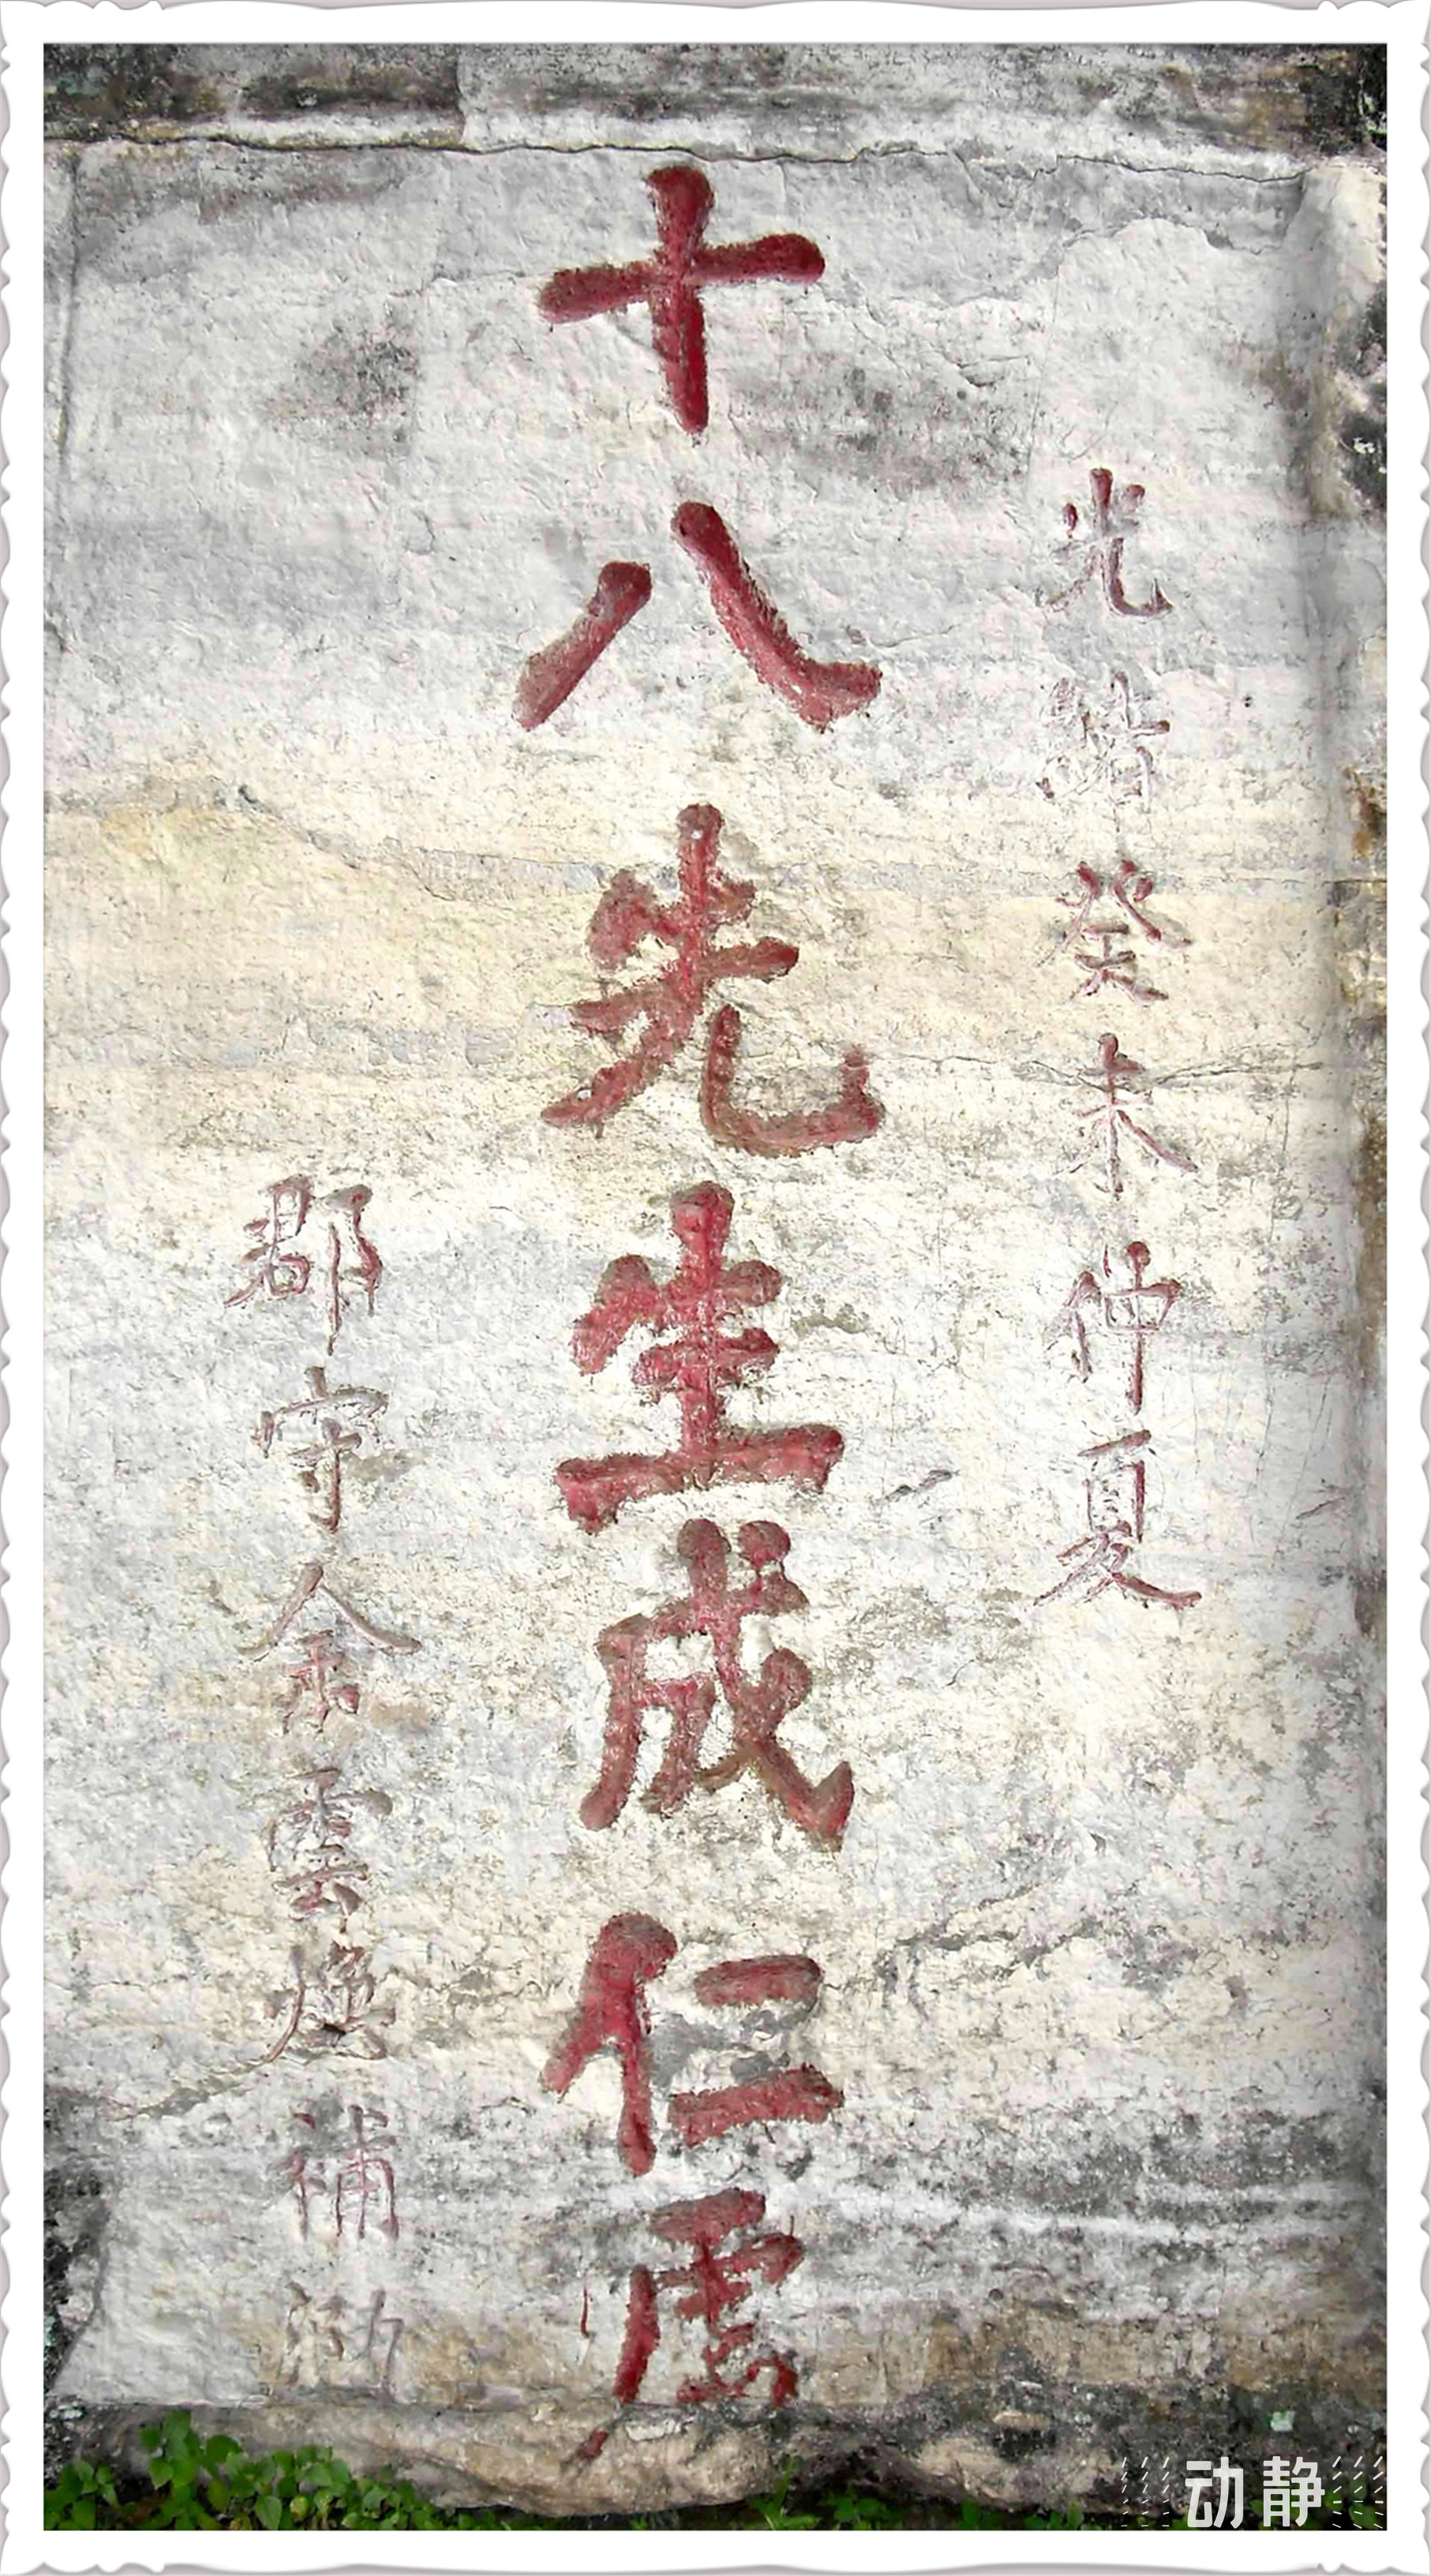 光緒癸未仲夏
十八先生成仁處
郡守余雲煥補泐
动静